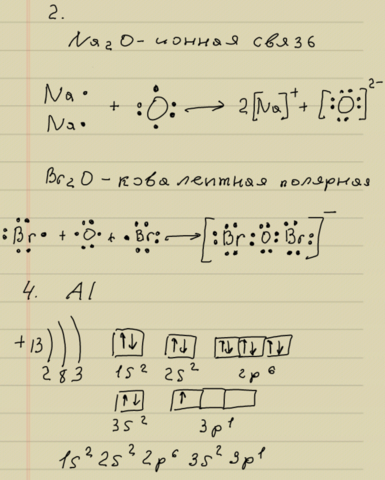 2.
Na₂O - ионная связь
Na• + •O: → 2[Na]⁺ + [:O:]²⁻
Na•
Br₂O - ковалентная полярная
:Br• + •O• + •Br: → [:Br:O:Br:]⁻
4. Al
+13 ) ) ) ↑↓ ↑↓ ↑↓ ↑↓ ↑↓
2 8 3 1s² 2s² 2p⁶
↑↓ ↑
3s² 3p¹
1s² 2s² 2p⁶ 3s² 3p¹